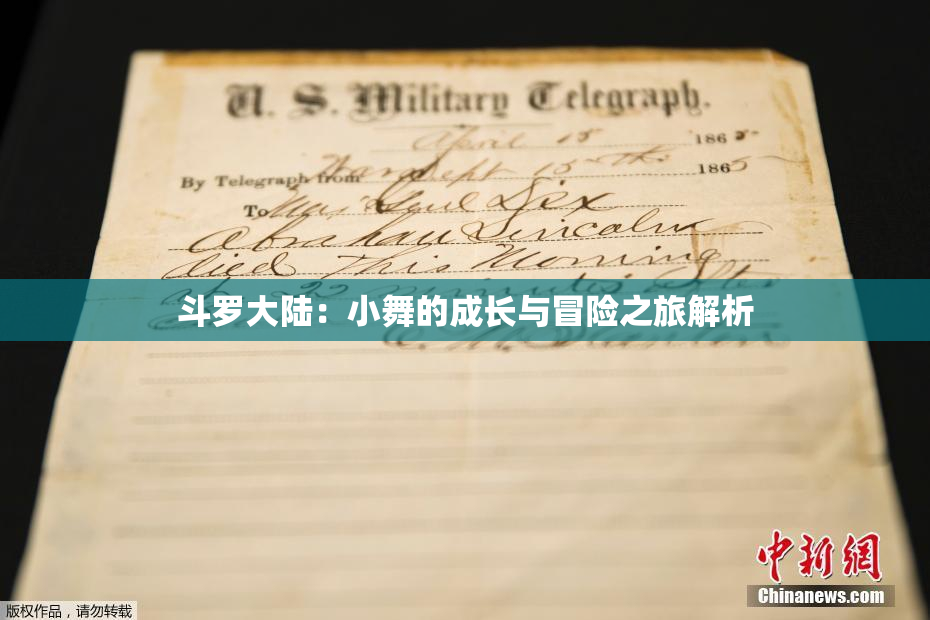 U. S. Military Telegraph.
April 15 1865
By Telegraph from War Dept 15th 1865
To Maj Genl Dix
Abraham Lincoln
died This Morning
at 22 minutes after
斗罗大陆：小舞的成长与冒险之旅解析
E. M. Stanton
中新网
Chinanews.com
版权作品，请勿转载